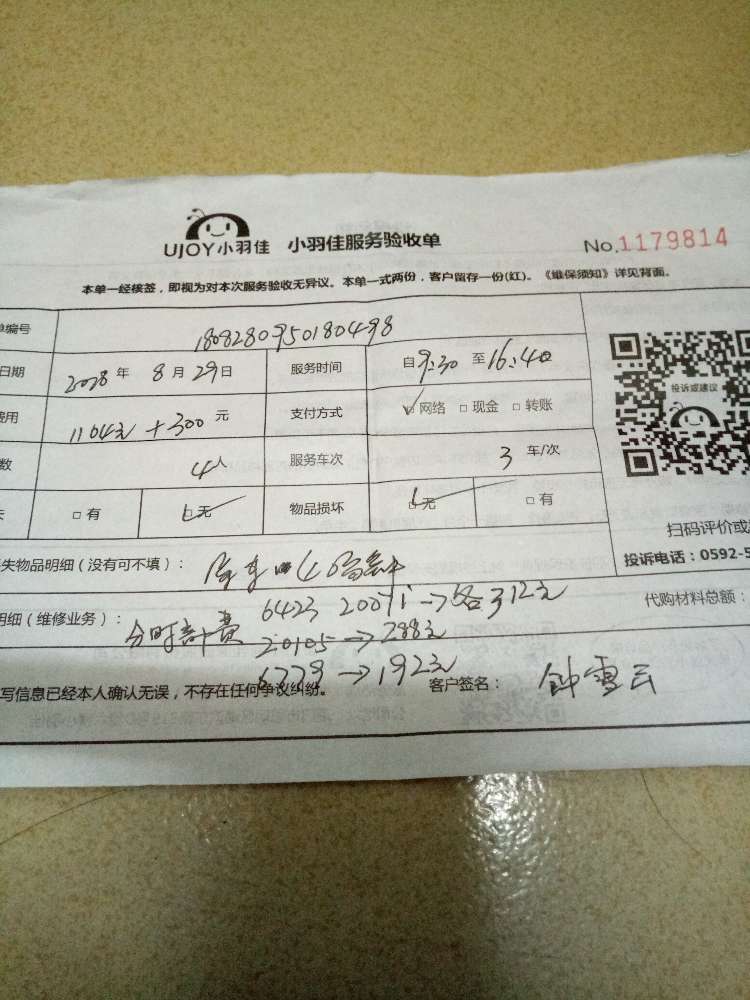 UJOY小羽佳 小羽佳服务验收单 No.1179814
本单一经核签，即视为对本次服务验收无异议。本单一式两份，客户留存一份(红)。《维保须知》详见背面。
单编号 18082809501804498
日期 2018 年 8 月 29 日 服务时间 自 9:30 至 16:40
费用 1104元 + 300 元 支付方式 ☑ 网络 □ 现金 □ 转账
数 4人 服务车次 3 车/次
□ 有 ☑ 无 物品损坏 ☑ 无 □ 有
投诉或建议
扫码评价或
失物品明细（没有可不填）：
投诉电话：0592-5
明细（维修业务）： 分时计费 6423 20071 → 各312元
代购材料总额：
20105 → 288元
6779 → 192元
写信息已经本人确认无误，不存在任何争议纠纷。 客户签名： 钟雪云